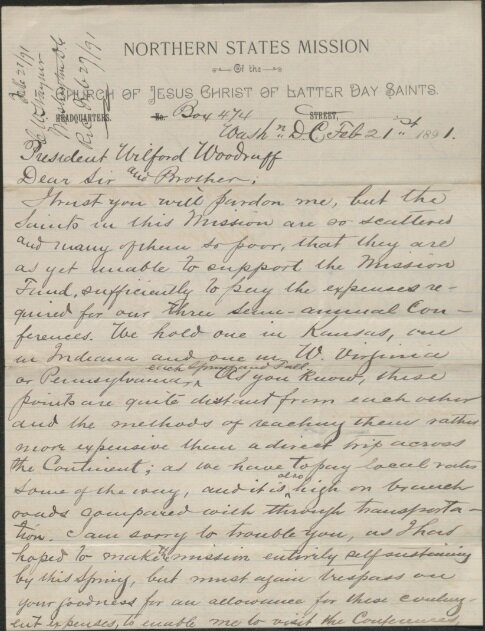 Feb 21/91
Washington D.C.
Rec Feb 27/91
NORTHERN STATES MISSION
Of the
CHURCH OF JESUS CHRIST OF LATTER DAY SAINTS.
HEADQUARTERS. No. Box 474 STREET,
Wash'n D.C. Feb 21st 1891.
President Wilford Woodruff
Dear Sir and Brother;
I trust you will pardon me, but the
Saints in this Mission are so scattered
and many of them so poor, that they are
as yet unable to support the Mission
Fund, sufficiently to pay the expenses re-
quired for our three semi-annual Con-
ferences. We hold one in Kansas, one
in Indiana and one in W. Virginia
each Spring and Fall.
or Pennsylvania ^ As you know, these
points are quite distant from each other
and the methods of reaching them rather
more expensive than a direct trip across
the Continent; as we have to pay local rates
also
some of the way, and it is ^ high on branch
roads compared with through transporta-
tion. I am sorry to trouble you, as I had
hoped to make the mission entirely self-sustaining
by this Spring, but must again trespass on
your goodness for an allowance for these conting-
ent expenses, to enable me to visit the Conferences,